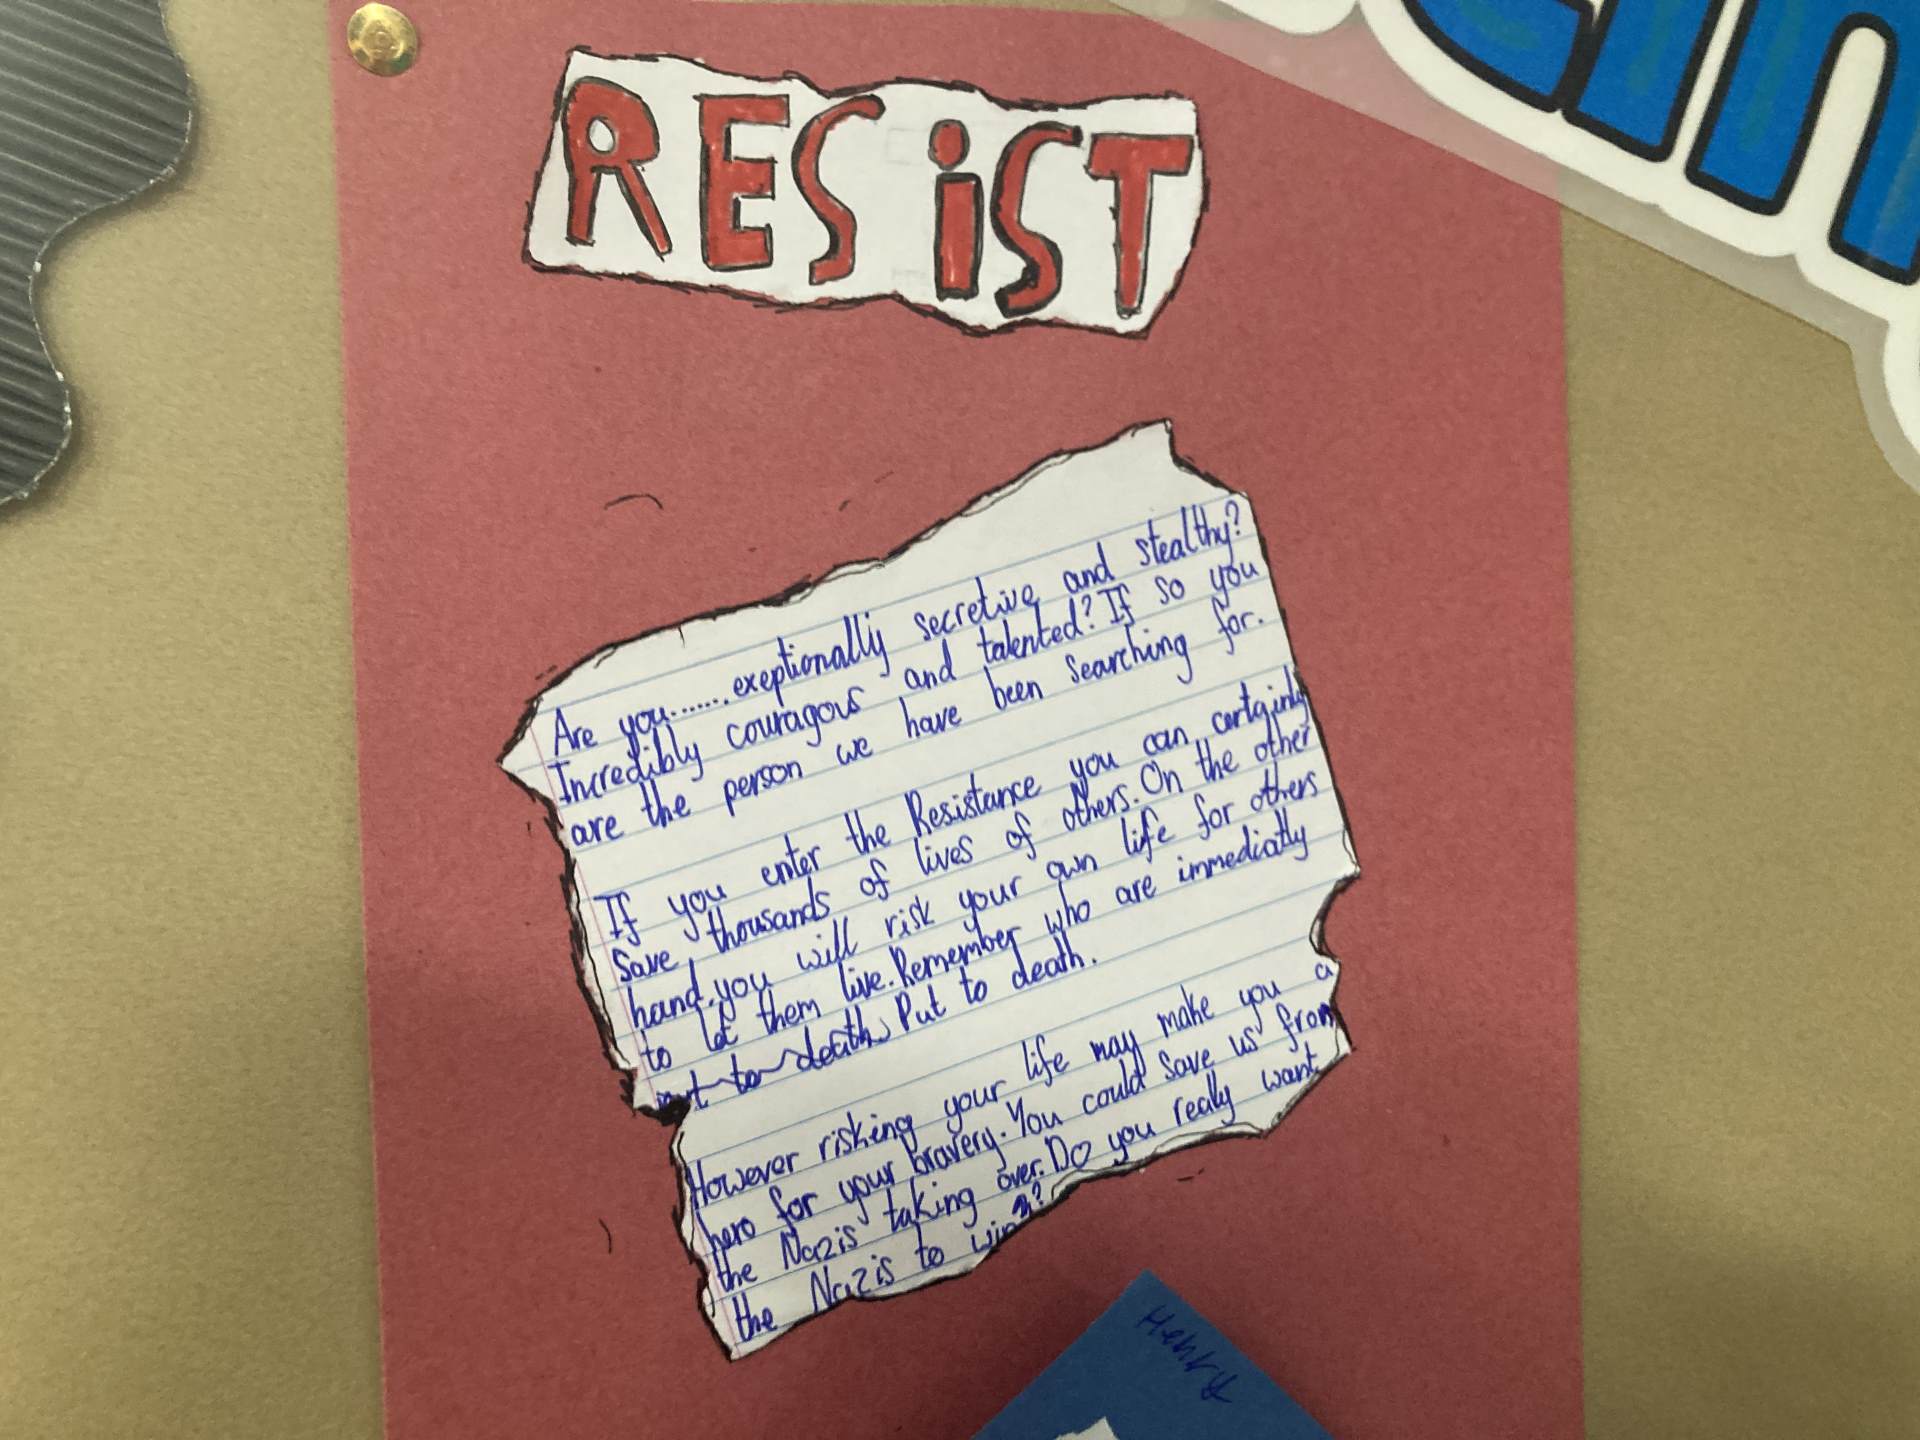 RESiST
Are you.......exeptionally secretive and stealthy?
Incredibly couragous and talented? If so you
are the person we have been searching for.
If you enter the Resistance you can certainly
save thousands of lives of others. On the other
hand, you will risk your own life for others
to let them live. Remember who are immediatly
put to death, Put to death.
However risking your life may make you a
hero for your bravery. You could save us from
the Nazis taking over. Do you really want
the Nazis to win?
Henry